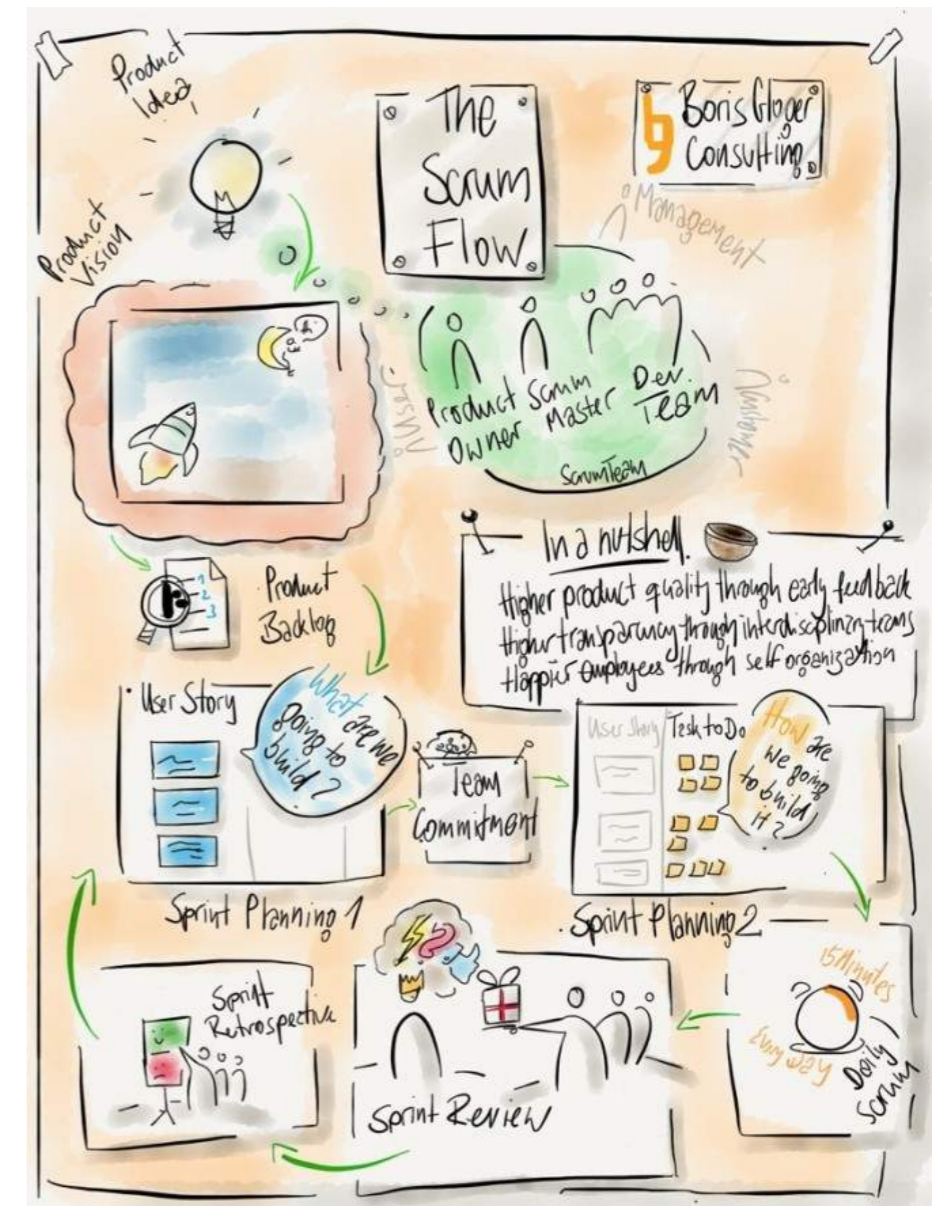 Product
Idea
The
Scrum
Flow
Boris Gloger
Consulting
Management
Product
Vision
Product
Owner
Scrum
Master
Dev.
Team
ScrumTeam
User
Customer
In a nutshell
Higher product quality through early feedback
Higher transparency through interdisciplinary teams
Happier employees through self organization
1
2
3
Product
Backlog
User Story
What are we
going to
build?
Team
Commitment
User Story
Task to Do
How are
we going
to build
it?
Sprint Planning 1
Sprint Planning 2
15 Minutes
Every Day
Daily
Scrum
Sprint Review
Sprint
Retrospective